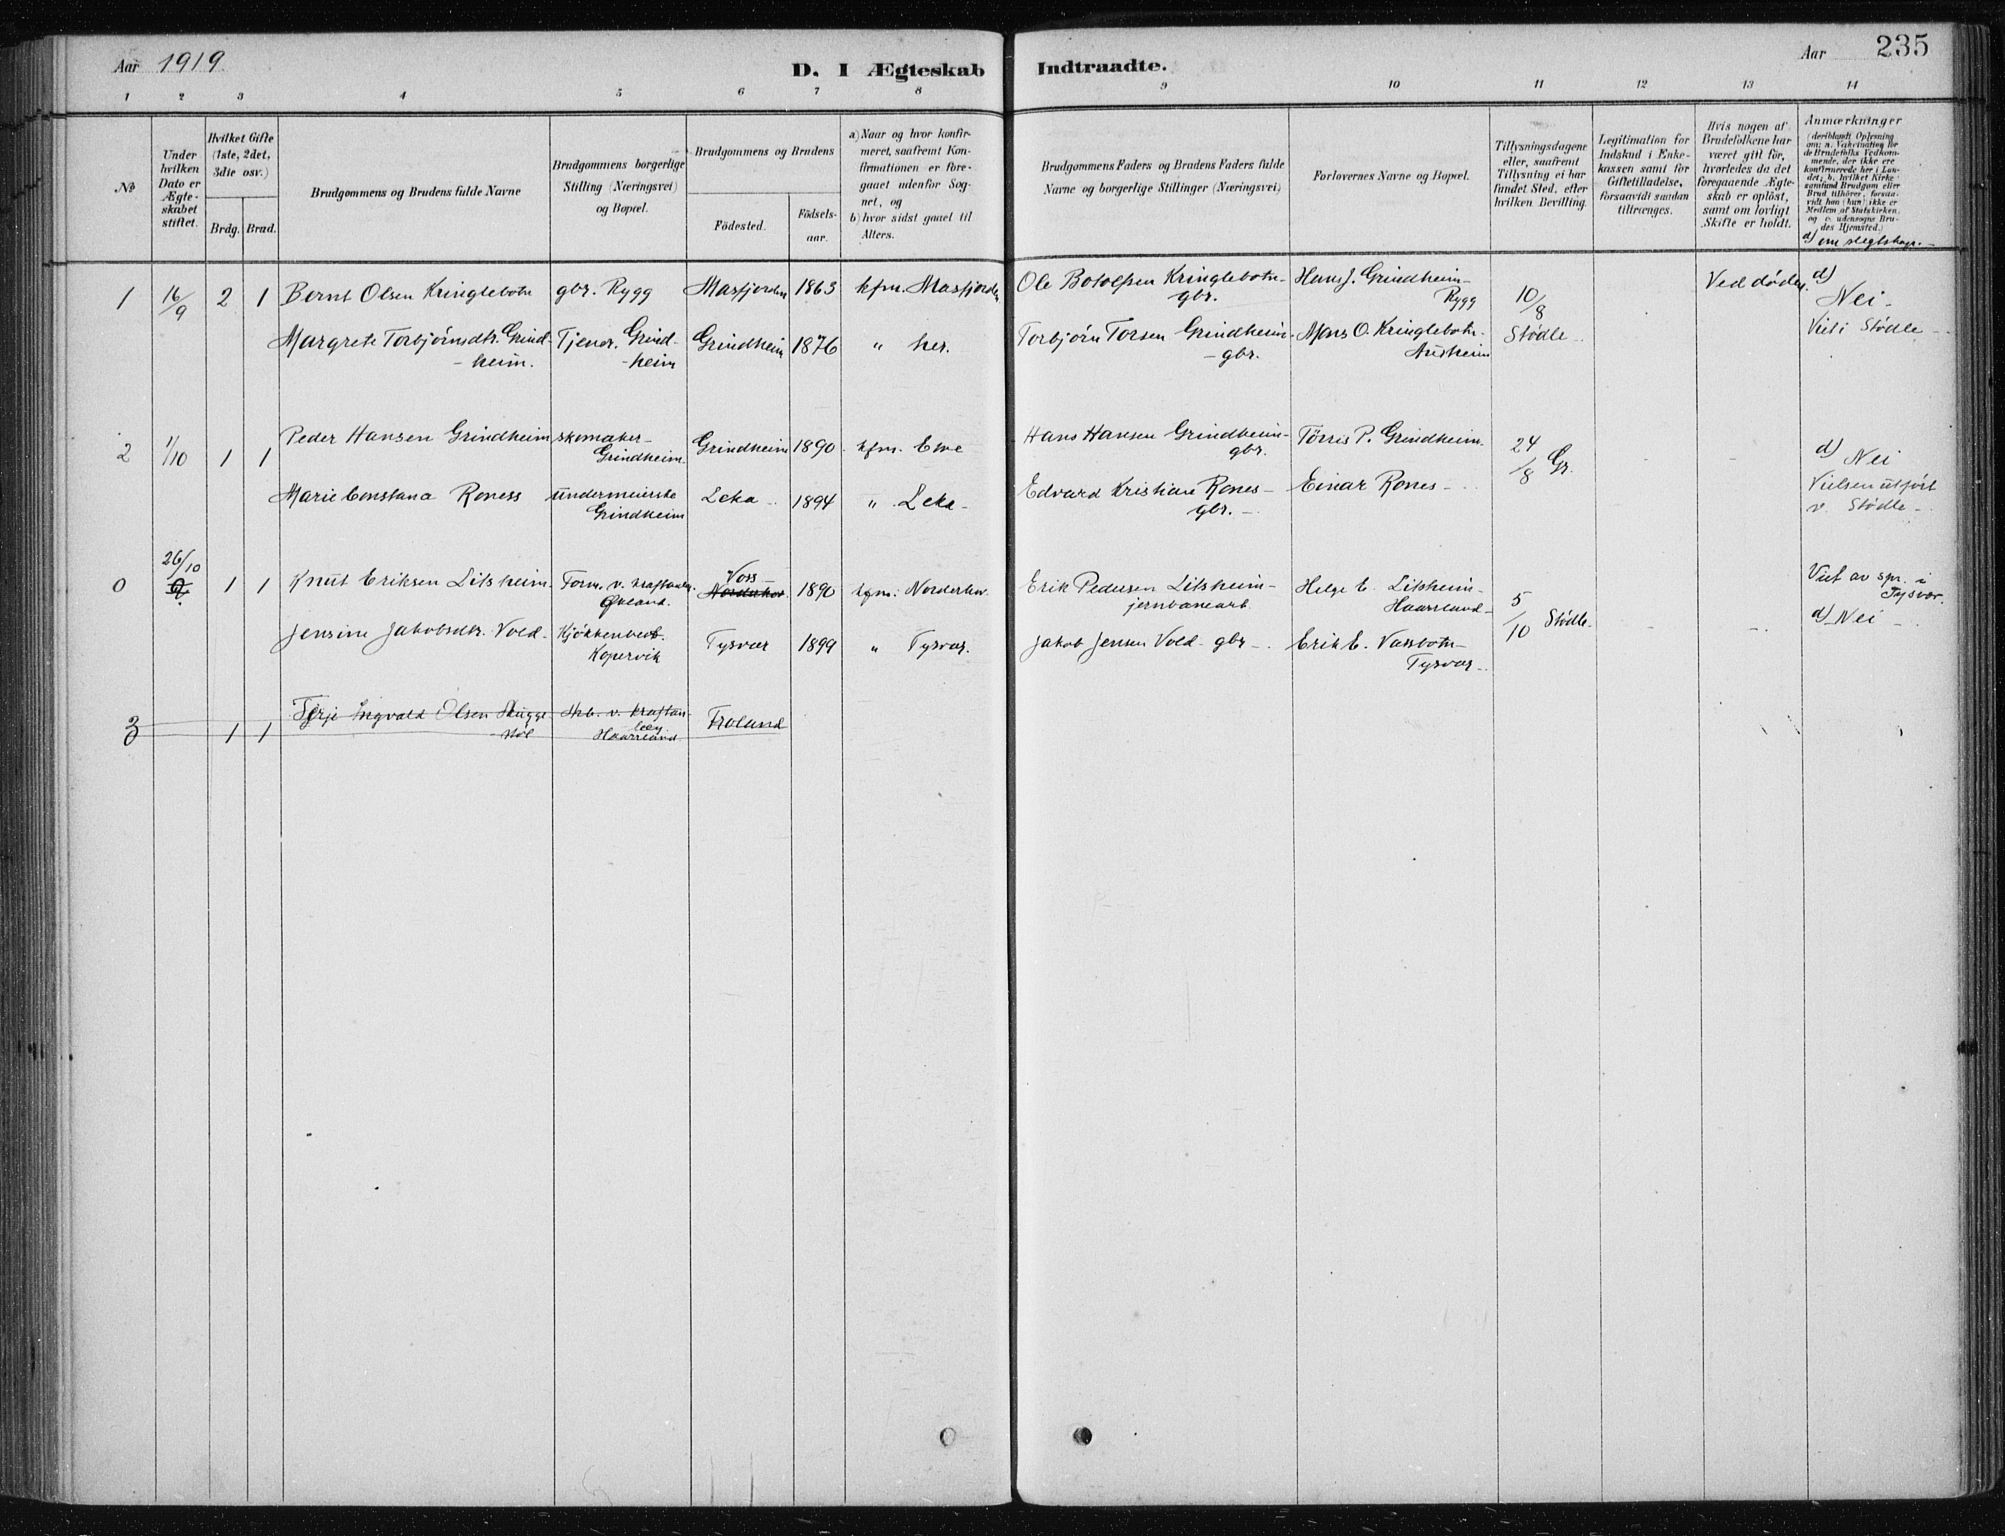 Aar 1919
D. I Ægteskab Indtraadte.
Aar 235
1 2 3 4 5 6 7 8 9 10 11 12 13 14
No
Under hvilken Dato er Ægteskabet stiftet.
Hvilket Gifte (1ste, 2det, 3die osv.)
Brdg. Brud.
Brudgommens og Brudens fulde Navne
Brudgommens borgerlige Stilling (Næringsvei) og Bopæl.
Brudgommens og Brudens
Fødested.
Fødselsaar.
a) Naar og hvor konfirmeret, saafremt Konfirmationen er foregaaet udenfor Sognet, og
b) hvor sidst gaaet til Alters.
Brudgommens Faders og Brudens Faders fulde Navne og borgerlige Stillinger (Næringsvei)
Forlovernes Navne og Bopæl.
Tillysningsdagene eller, saafremt Tillysning ei har fundet Sted, efter hvilken Bevilling.
Legitimation for Indskud i Enkekassen samt for Giftetilladelse, forsaavidt saadan tiltrænges.
Hvis nogen af Brudefolkene har været gift før, hvorledes da det foregaaende Ægteskab er opløst, samt om lovligt Skifte er holdt.
Anmærkninger (deriblandt Oplysning om: a. Vakcination for de Brudefolks Vedkommende, der ikke ere konfirmerede her i Landet; b. hvilket Kirkesamfund Brudgom eller Brud tilhører, forsaavidt han (hun) ikke er Medlem af Statskirken, og c. udensogns Brudes Hjemsted.)
d) om slegtskap.
1 16/9 2 1 Bernt Olsen Kringlebotn gbr. Rygg Masfjorden 1863 kfm. Masfjorden Ole Botolfsen Kringlebotn- gbr. Hans J. Grindheim- Rygg 10/8 Stødle Ved døden. d) Nei- Viet i Stødle
Margrete Torbjørnsdtr. Grindheim. Tjener. Grindheim Grindheim 1876 " her. Torbjørn Torsen Grindheim- gbr. Mons O. Kringlebotn- Austheim
2 1/10 1 1 Peder Hansen Grindheim skomaker- Grindheim Grindheim 1890 kfm. Etne Hans Hansen Grindheim- gbr. Tørris P. Grindheim. 24/8 Gr. d) Nei
Marie Constana Roness undermeierske Grindheim Leka 1894 " Leka- Edvard Kristian Rones- gbr. Einar Rones- Vielsen utført v. Stødle
0 26/10 1 1 Knut Eriksen Litsheim. Form. v. kraftanleg. Øvland. Voss Norderhov 1890 kfm. Norderhov Erik Pedersen Litsheim- jernbanearb. Helge E. Litsheim- Haarsland- 5/10 Stødle. Viet av spr. i Tysvær.
Jensine Jakobsdtr. Vold- Kjøkkenbest. Kopervik Tysvær 1899 " Tysvær. Jakob Jensen Vold- gbr- Erik E. Vassbotn- Tysvær- d) Nei-
3 1 1 Terje Ingvald Olsen Skuggestøl Arb. v. kraftanleg Haarsland Froland